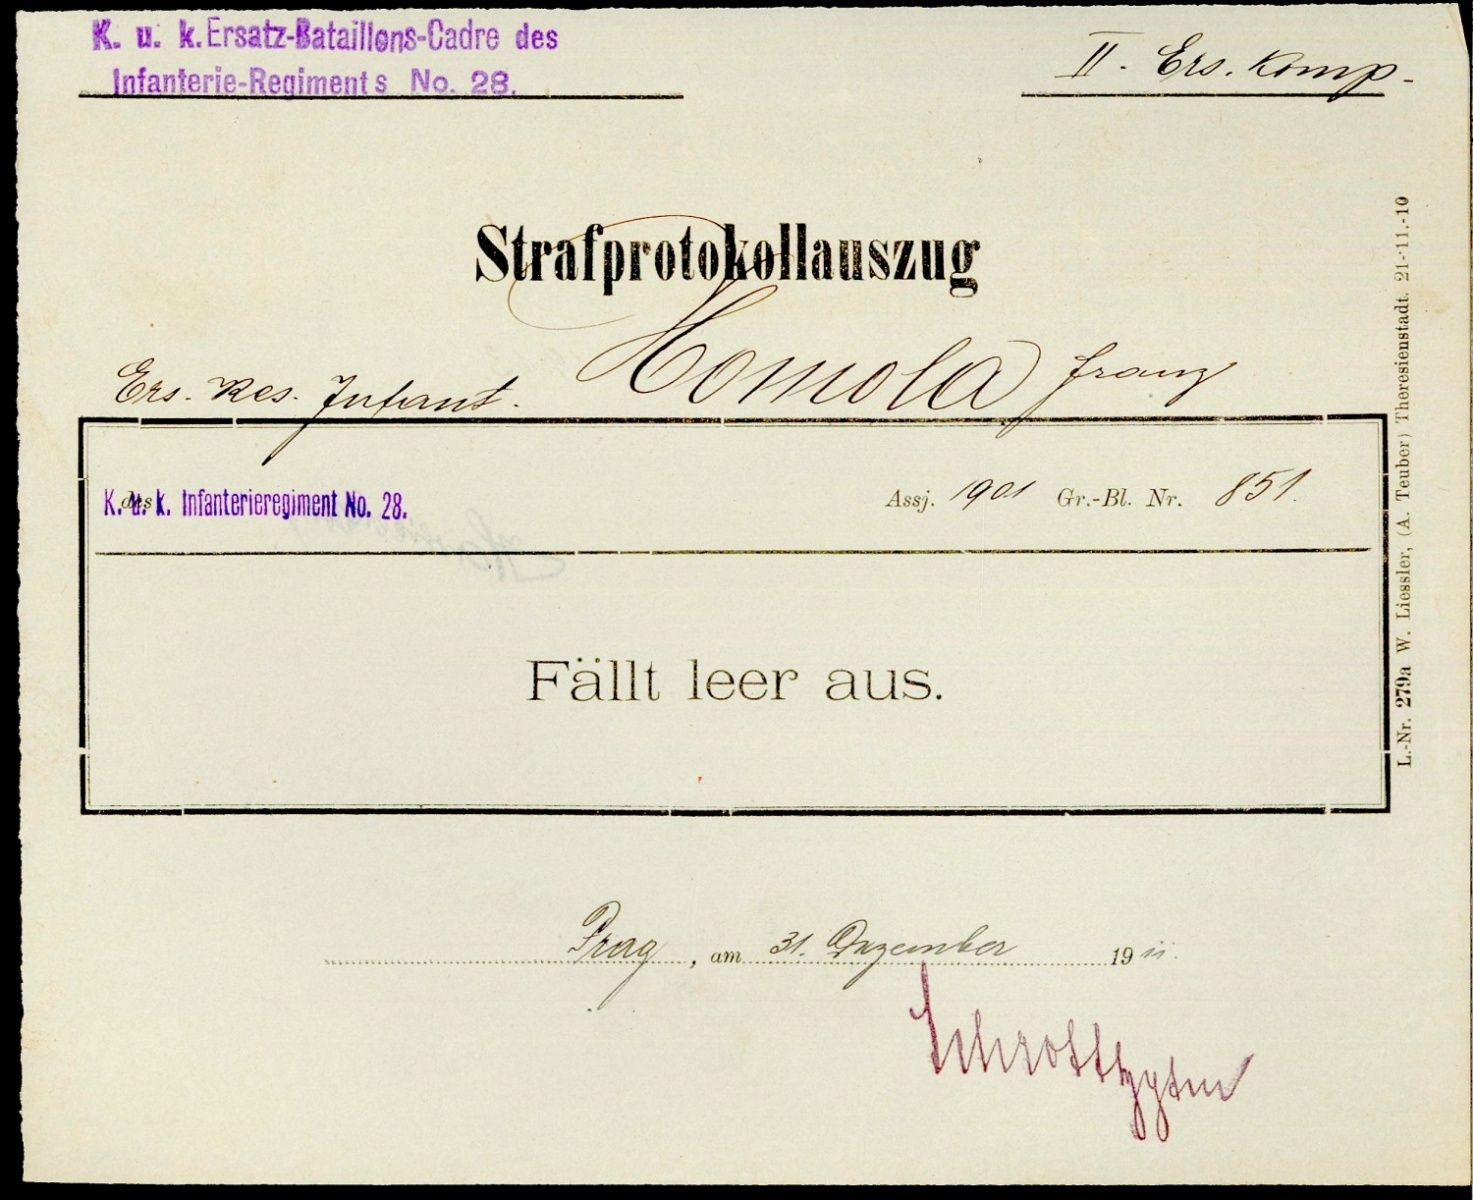 K. u. k. Ersatz-Bataillons-Cadre des
Infanterie-Regiments No. 28.
II. Ers. Komp.
Strafprotokollauszug
Ers. Res. Infant. Homola Franz
des
K. u. k. Infanterieregiment No. 28.
Assj. 1901 Gr.-Bl. Nr. 851.
Fällt leer aus.
Prag, am 31. Dezember 1911.
L.-Nr. 279a W. Liessler, (A. Teuber) Theresienstadt. 21-11.-10